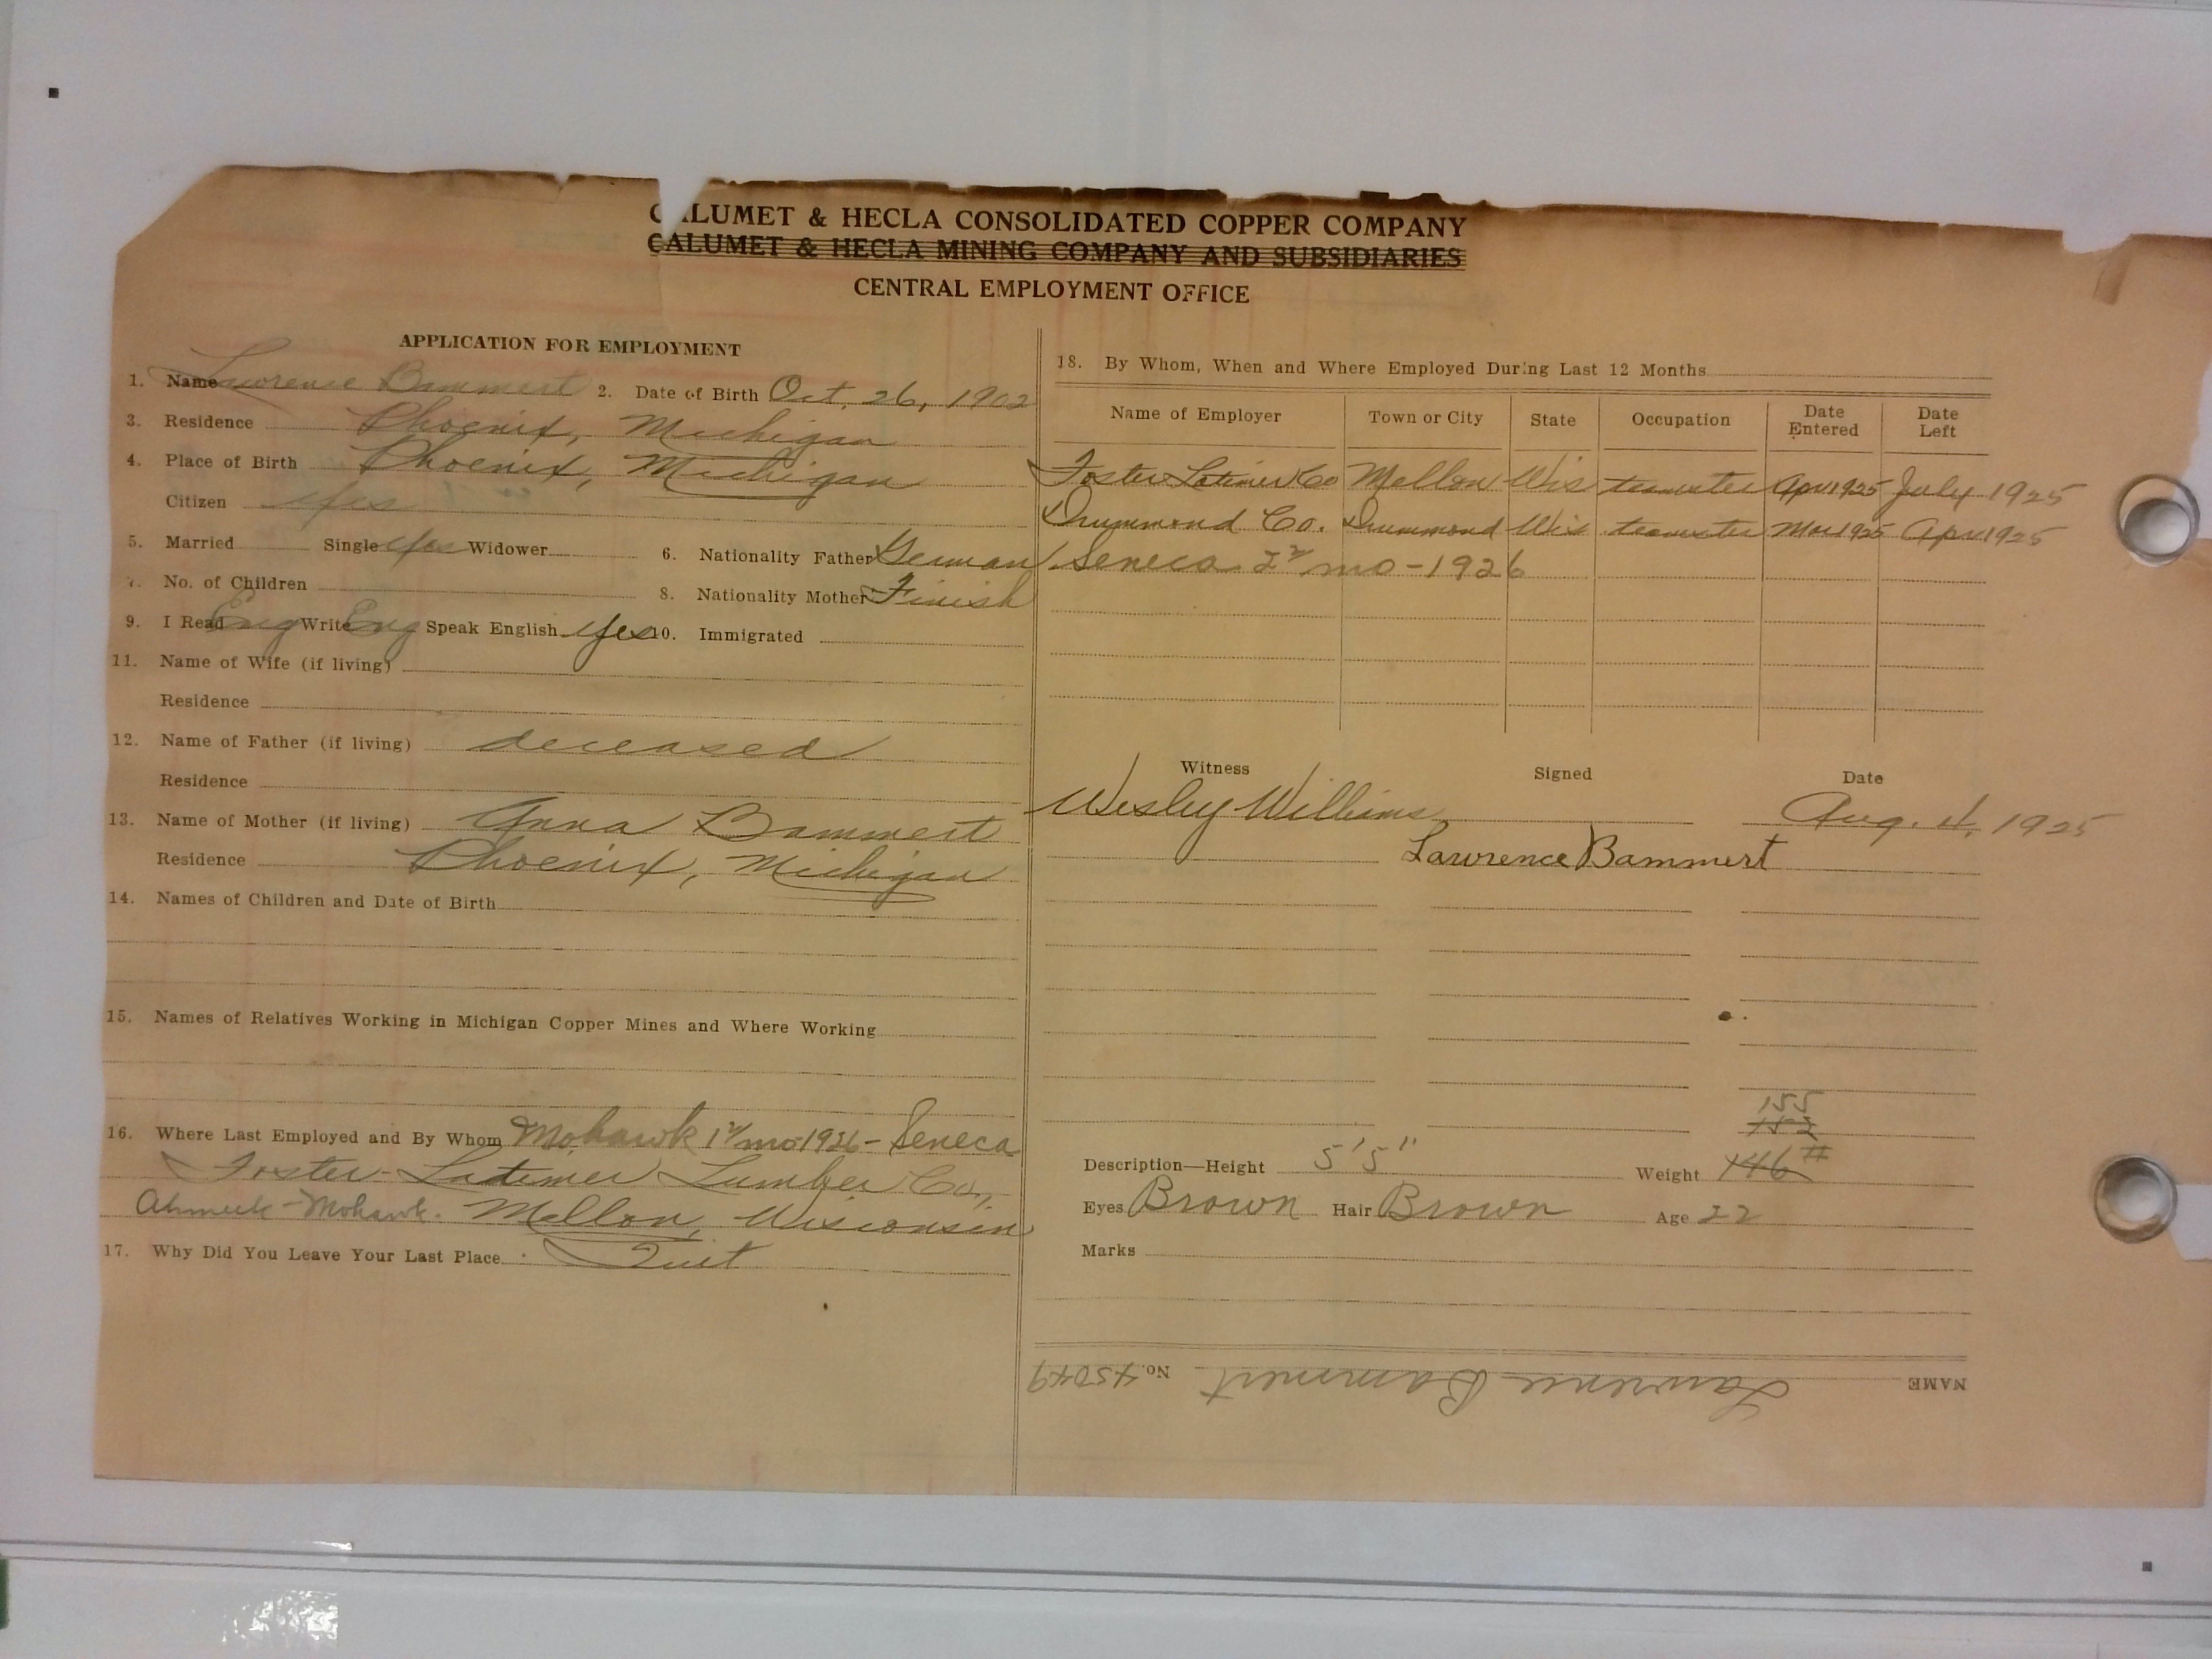 CALUMET & HECLA CONSOLIDATED COPPER COMPANY
CALUMET & HECLA MINING COMPANY AND SUBSIDIARIES
CENTRAL EMPLOYMENT OFFICE
APPLICATION FOR EMPLOYMENT
1. Name Lawrence Bammert 2. Date of Birth Oct. 26, 1902
3. Residence Phoenix, Michigan
4. Place of Birth Phoenix, Michigan
Citizen Yes
5. Married Single Yes Widower 6. Nationality Father German
7. No. of Children 8. Nationality Mother Finish
9. I Read Eng Write Eng Speak English Yes 10. Immigrated
11. Name of Wife (if living)
Residence
12. Name of Father (if living) deceased
Residence
13. Name of Mother (if living) Anna Bammert
Residence Phoenix, Michigan
14. Names of Children and Date of Birth
15. Names of Relatives Working in Michigan Copper Mines and Where Working
16. Where Last Employed and By Whom Mohawk 1 mo 1926 - Seneca
Foster-Latimer Lumber Co.,
Ahmeek - Mohawk. Mellon, Wisconsin
17. Why Did You Leave Your Last Place Quit
18. By Whom, When and Where Employed During Last 12 Months
Name of Employer Town or City State Occupation Date Entered Date Left
Foster Latimer Co Mellon Wis teamster Apr 1925 July 1925
Drummond Co. Drummond Wis teamster Mar 1925 Apr 1925
Seneca 2 mo - 1926
Witness Signed Date
Wesley Williams Aug. 4, 1925
Lawrence Bammert
155
152
Description—Height 5' 5" Weight 146 #
Eyes Brown Hair Brown Age 22
Marks
NAME Lawrence Bammert No. 45049